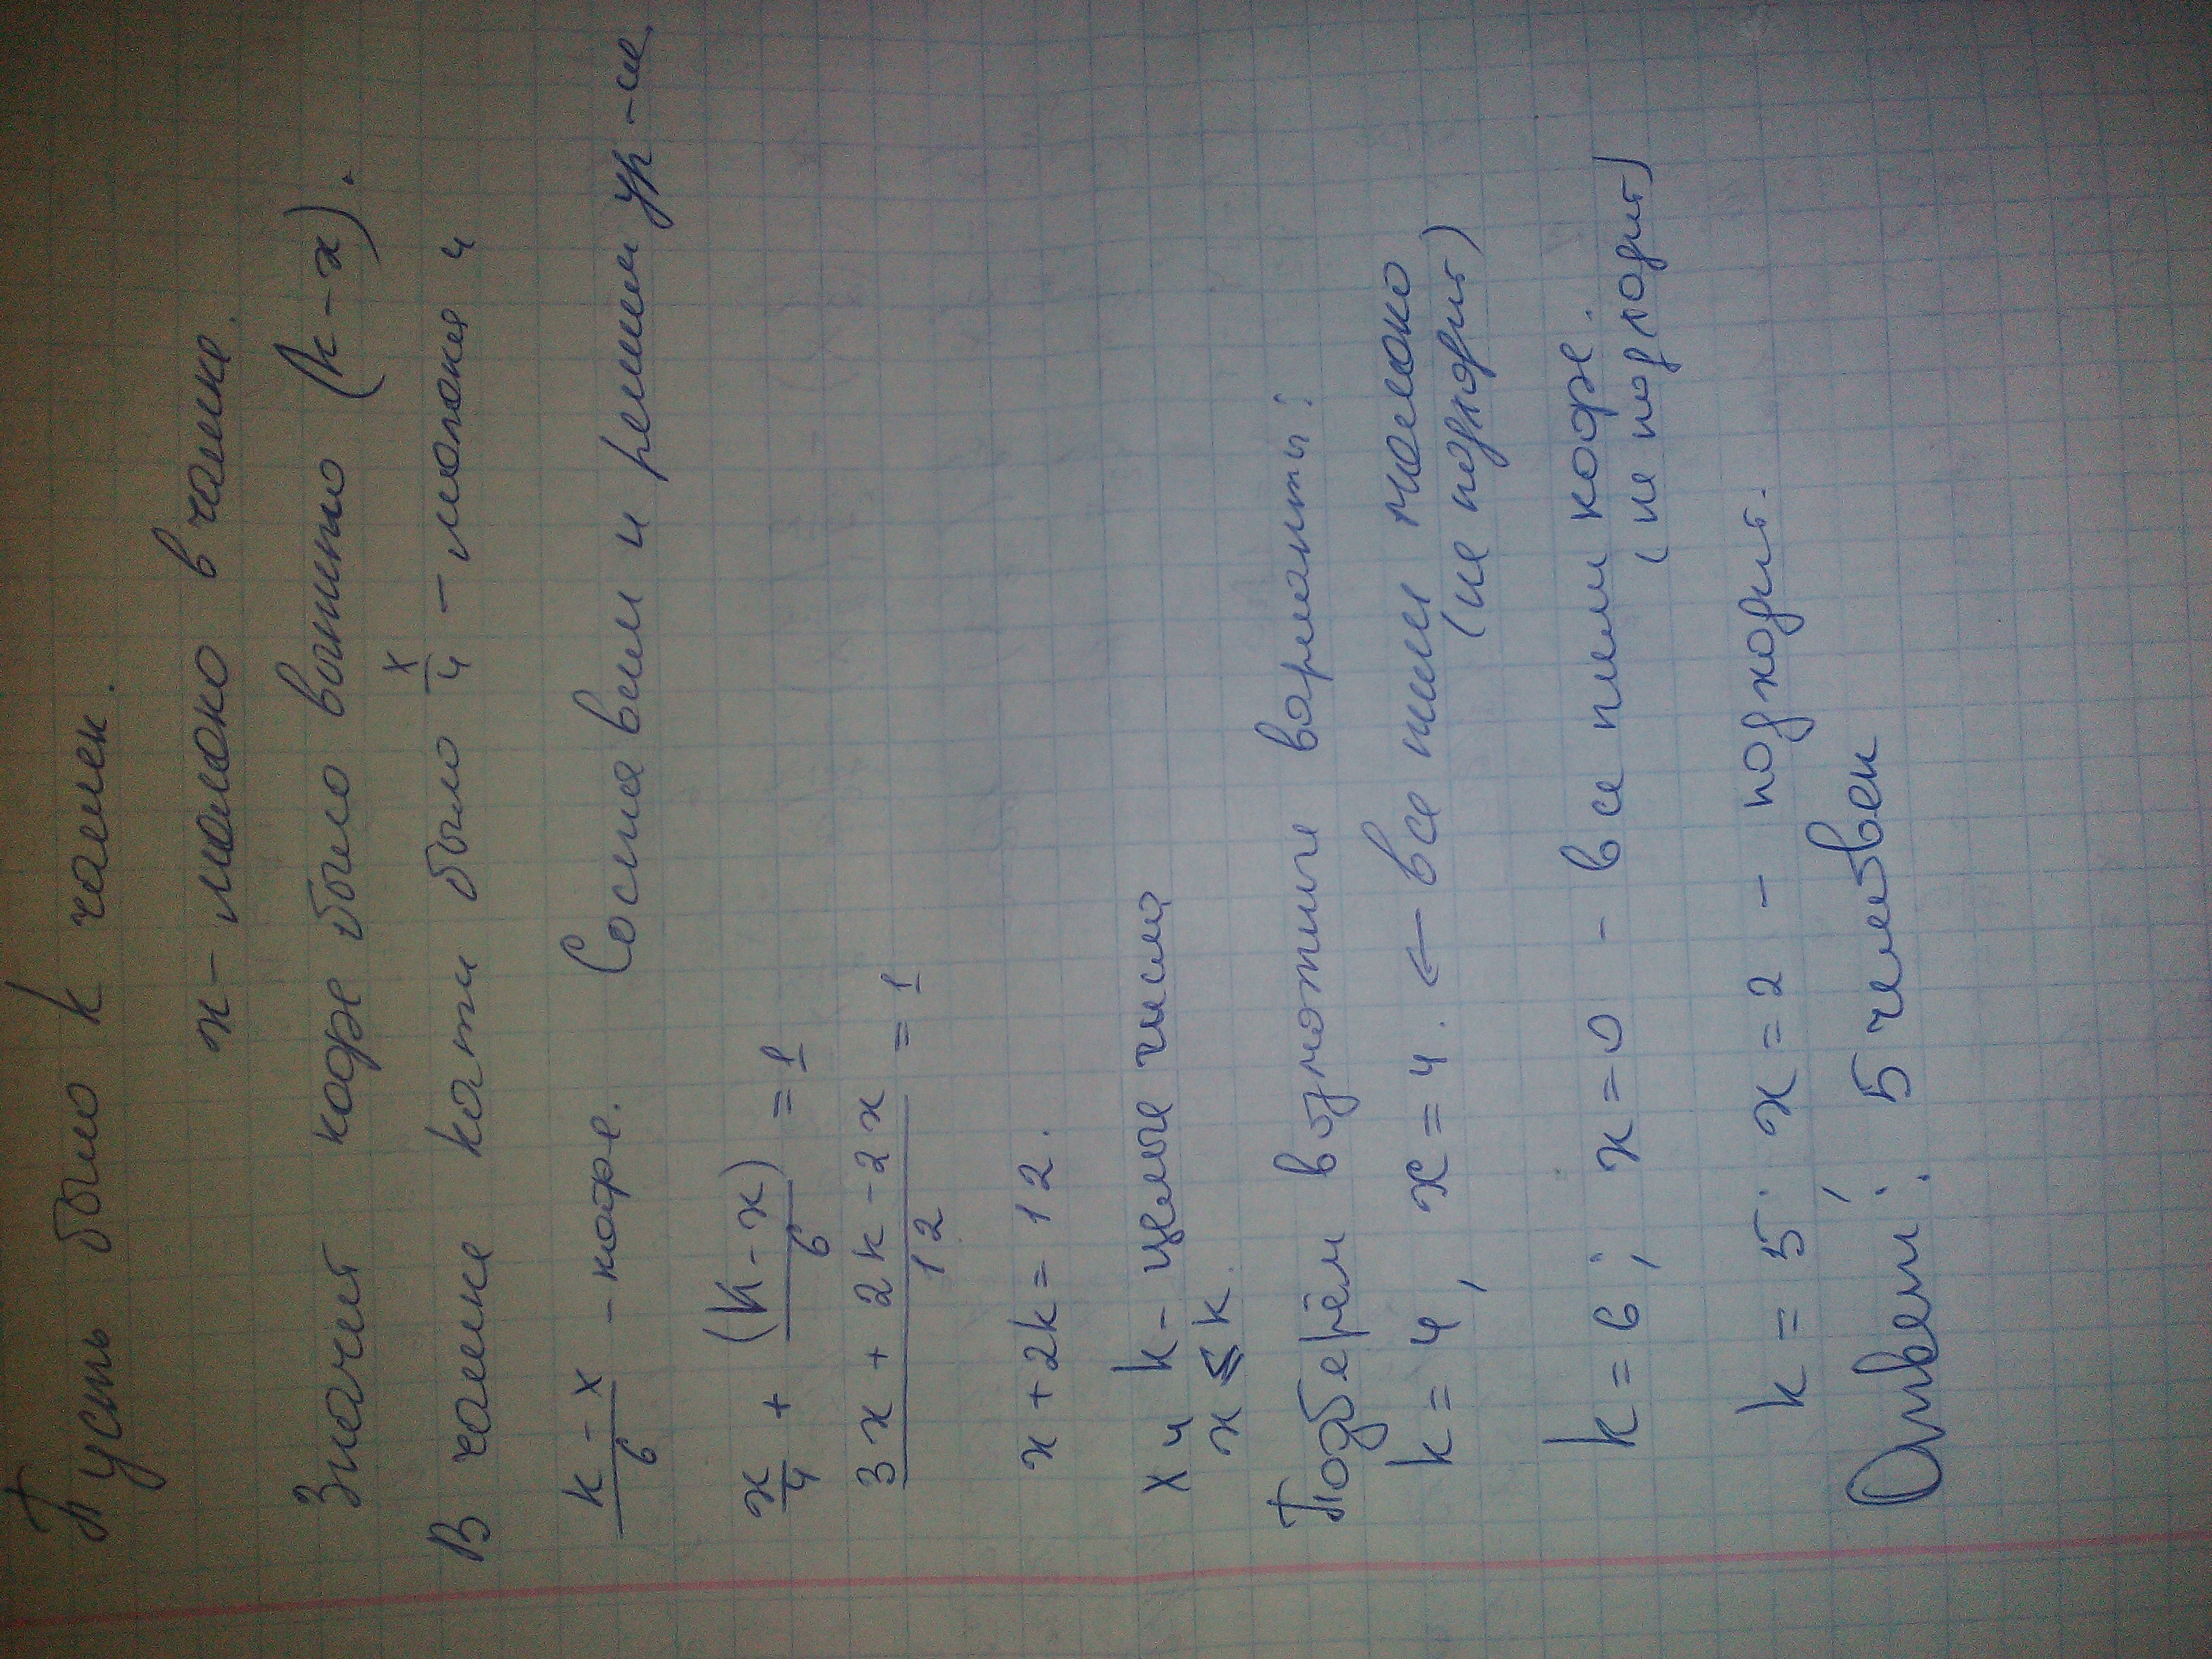 Пусть было k чашек.
x - молоко в чашке.
Значит кофе было выпито (k-x).
В чашке кати было x/4 - молока и
k-x/6 - кофе. Составим и решим ур-ие.
x/4 + (k-x)/6 = 1
3x + 2k - 2x/12 = 1
x + 2k = 12.
x и k - целые числа
x ≤ k.
Подберём возможные варианты:
k = 4, x = 4. ← все пили молоко
(не подходит)
k = 6; x = 0 - все пили кофе.
(не подходит)
k = 5; x = 2 - подходит.
Ответ: 5 человек